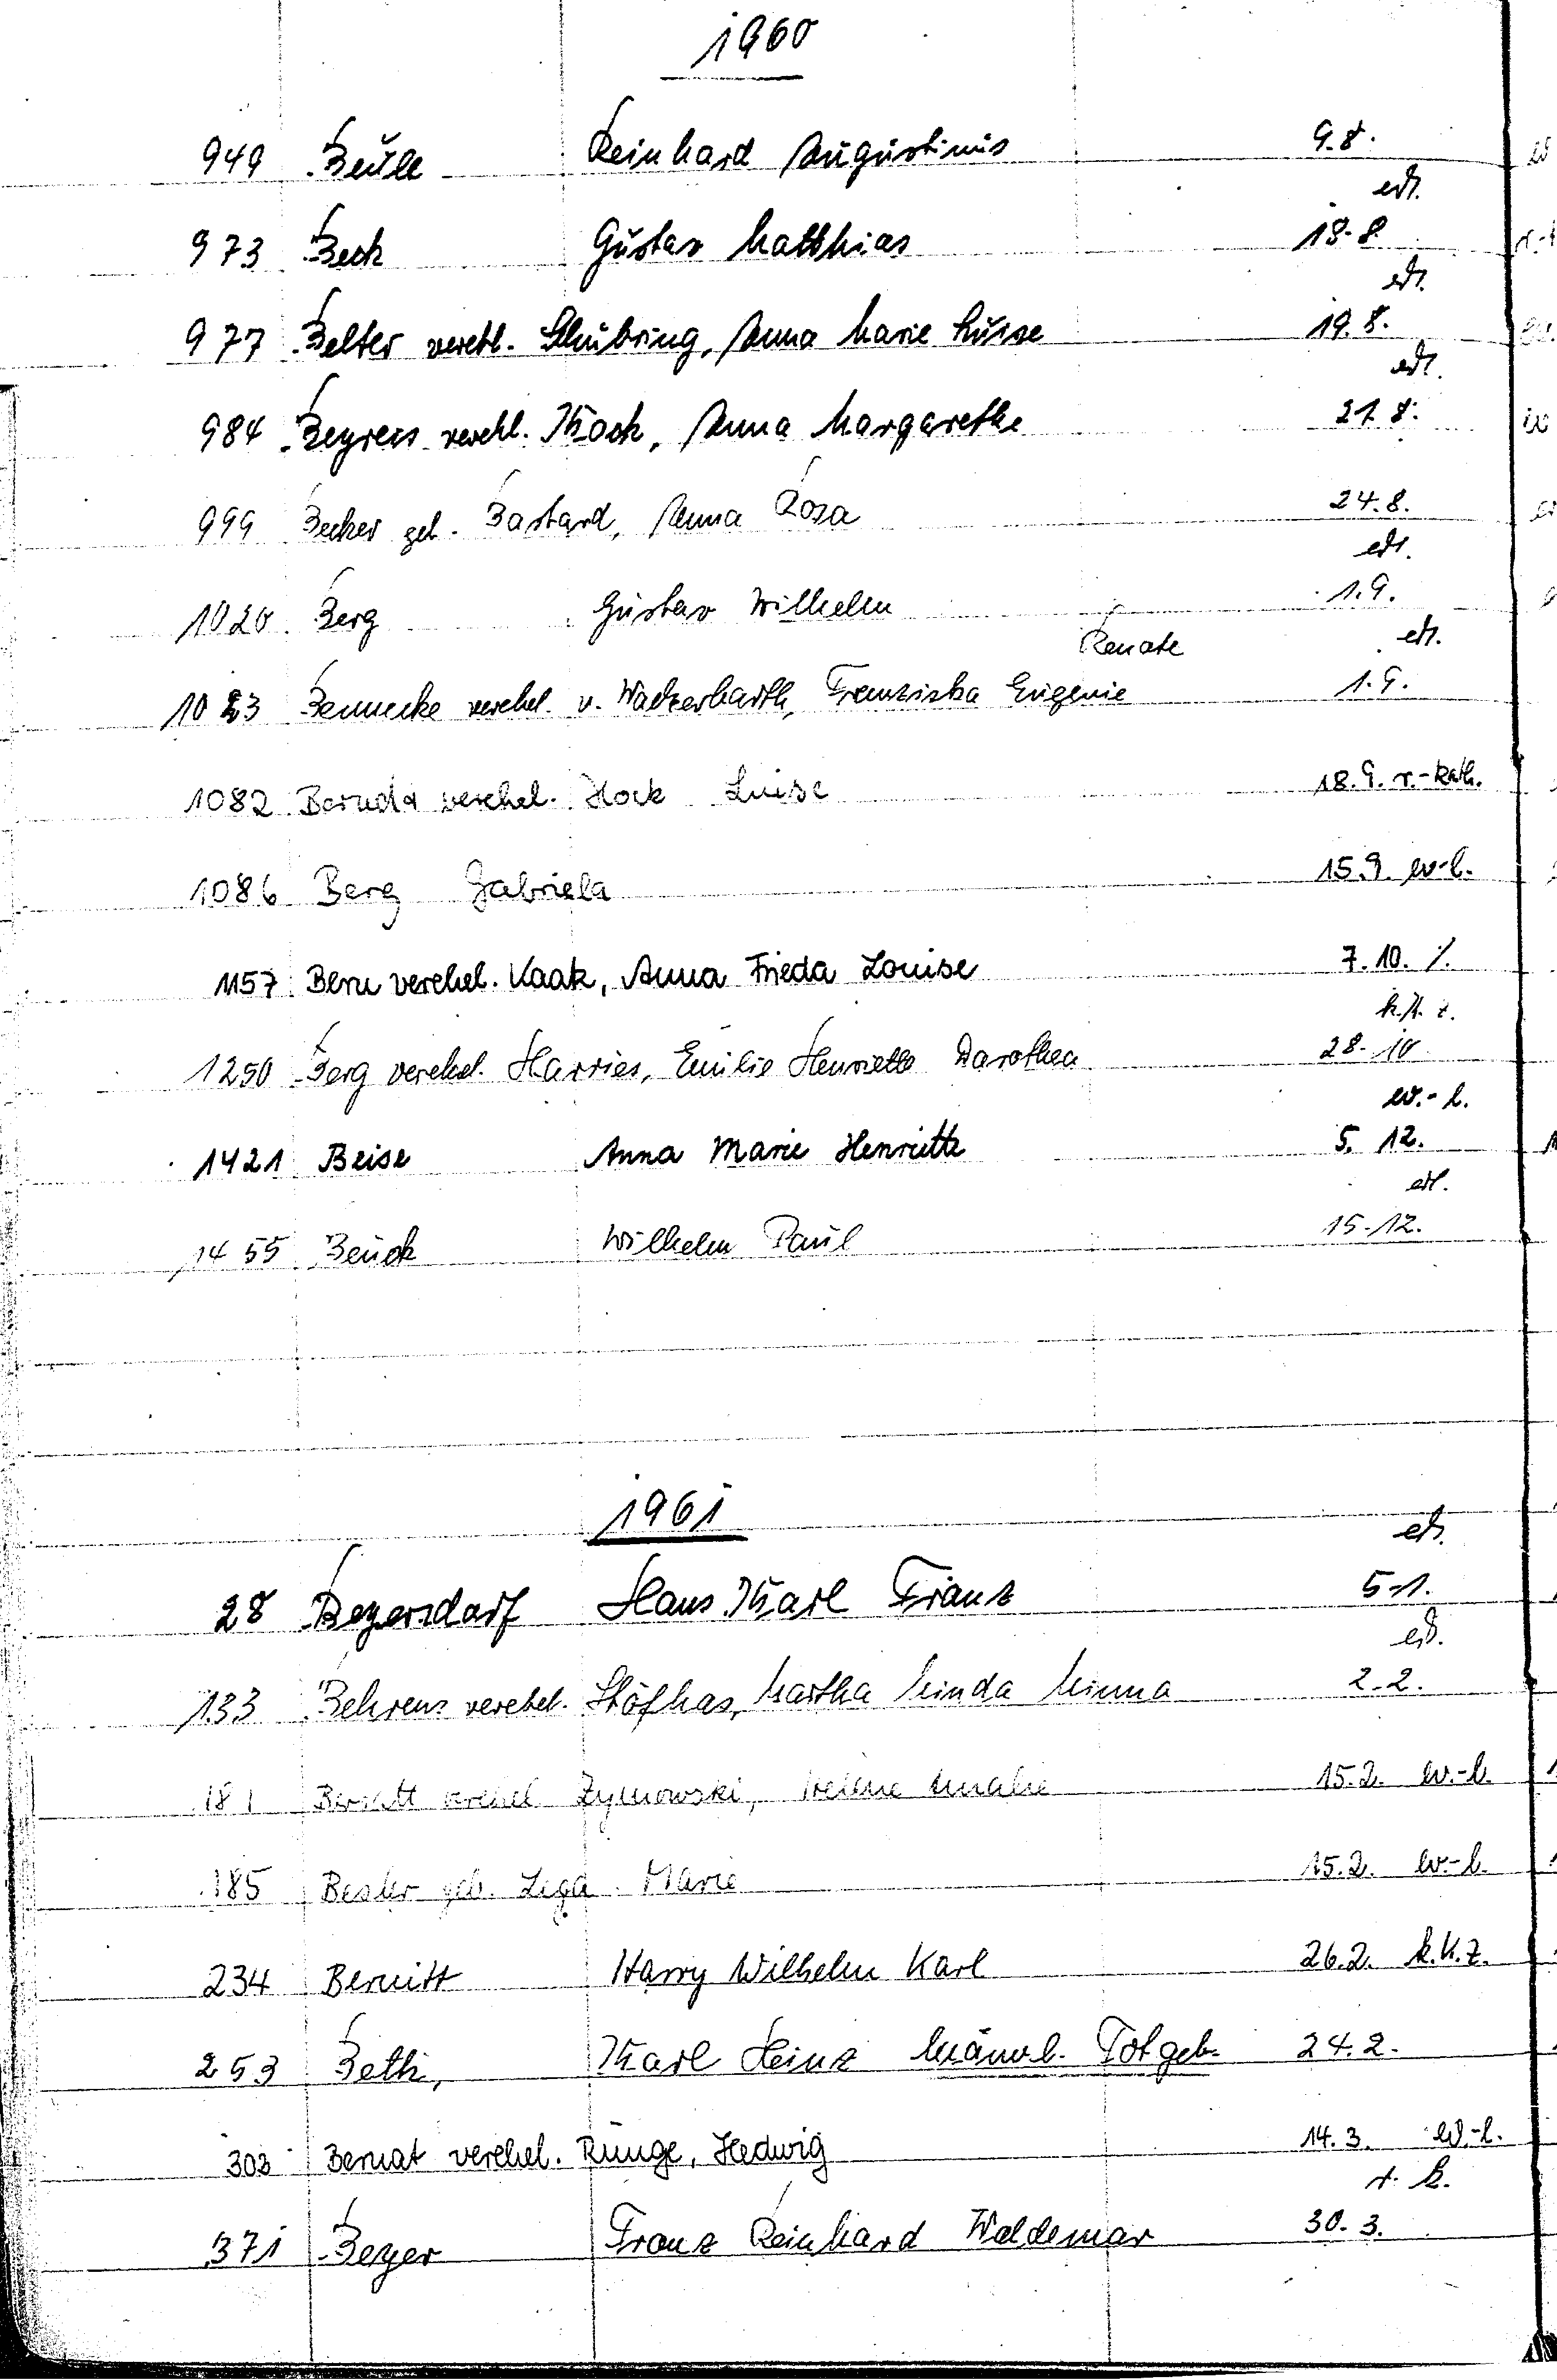 1960
949 Beule Reinhard Augustinus 9.8.
ev.
973 Beck Gustav Matthias 18.8.
ev.
977 Belter verehl. Schubring, Anna Marie Luise 19.8.
ev.
984 Beyreis verehl. Koch, Anna Margarethe 21.8.
999 Becker geb. Bastard, Anna Rosa 24.8.
ev.
1020 Berg Gustav Wilhelm 1.9.
Renate ev.
1023 Bennecke verehel. v. Wackerbarth, Franziska Eugenie 1.9.
1082 Beruda verehel. Hock Luise 18.9. r.-kath.
1086 Berg Gabriela 15.9. ev-l.
1157 Bern verehel. Kaak, Anna Frieda Louise 7.10. %.
k.K.z.
1250 Berg verehel. Harries, Emilie Henriette Dorothea 28.10
ev.-l.
1421 Beise Anna Marie Henriette 5.12.
ev.
1455 Beuck Wilhelm Paul 15.12.
1961
ev.
28 Beyersdorf Hans Karl Franz 5.1.
ev.
133 Behrens verehel. Stöfhas, Martha Minda Minna 2.2.
181 verehel. Zymowski, Helene Amalie 15.2. ev.-l.
185 Besler geb. Lega Marie 15.2. ev.-l.
234 Bernitt Harry Wilhelm Karl 26.2. k.K.z.
253 Beth, Karl Heinz Männl. Totgeb. 24.2.
303 Bernat verehel. Runge, Hedwig 14.3. ev.-l.
r. k.
371 Beyer Franz Reinhard Waldemar 30.3.